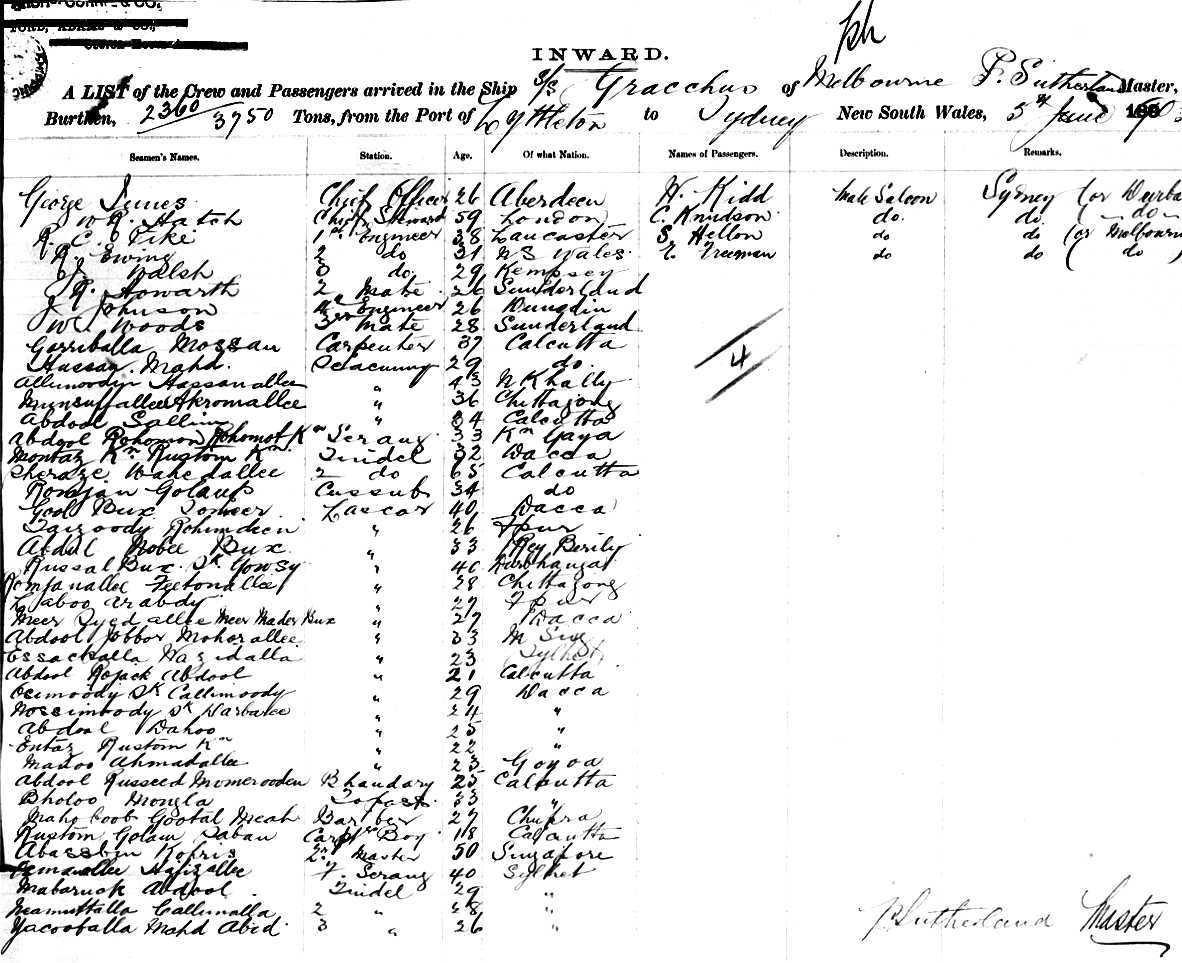 INWARD.
A LIST of the Crew and Passengers arrived in the Ship S/S Gracchus of Melbourne P. Sutherland Master,
Burthen, 2360/3750 Tons, from the Port of Lyttleton to Sydney New South Wales, 5th June 190
Seamen's Names. Station. Age. Of what Nation. Names of Passengers. Description. Remarks.
George Chief Officer 26 Aberdeen H. Kidd Male Saloon Sydney (or Durba
W R. Hatch Chief Steward 59 London C. Knudson do. do (- do -
R. C. Fike 1st Engineer 38 Lancaster S. Hellon do do (or Melbourn
R. Ewing 2 do 31 N S Wales. Freeman do do ( do )
J. Walsh 3 do 29 Kempsey
R. Howarth 2 Mate 26 Sunderland
J. Johnson 4 Engineer 26 Dunedin
W. Woods 3rd Mate 28 Sunderland
Gorriballa Mossan Carpenter 37 Calcutta
Hassan Mahd. Seacunny 29 do. 4
Allimoodyn Hassanallee " 43 N Khally
Munsuffallee Akromallee " 36 Chittagong
Abdool Sallim " 34 Calcutta
Abdool Rohomon Rohomot Kn Serang 33 Kn Gaya
Montaz Kn Rustom Kn Tindel 32 Dacca
Sheraze Wahedallee 2 do 65 Calcutta
Romjan Golaup Cussub 34 do
Gool Bux Lascar 40 Dacca
Faizoody Rohimdeen " 26 Fpur
Abdul Nobee Bux " 33 Rey Berily
Russal Bux Sk Gowsy " 40 Durbhanga
Romjanallee Feetonallee " 28 Chittagong
Laboo Arabdy " 27 Fpur
Meer Syed allee Meer Mader Bux " 27 Dacca
Abdool Jobbor Mohorallee " 33 M Sing
Essackalla Wazidalla " 23 Sylhet
Abdool Rojack Abdool " 21 Calcutta
Osimoody Sk Callimoody " 29 Dacca
Nossimoody Sk Darbaree " 24 "
Abdool Dahoo " 25 "
Entaz Rustom Kn " 22 "
Madoo Ahmadallee " 23 Goyoa
Abdool Russeed Momerooden Bhandary 25 Calcutta
Bholoo Mongla Topass 33 "
Mahoboob Gootal Meah Barber 27 Chupra
Rustom Golam Saban Carptrs Boy 18 Calcutta
Abassbin Kofris Master 50 Singapore
Hafizallee F. Serang 40 Sylhet
Mabaruck Abdool Tindel 29 "
Neamuttalla Callimalla 2 " 28 "
Yacooballa Mahd Abid 3 " 26 "
P Sutherland Master